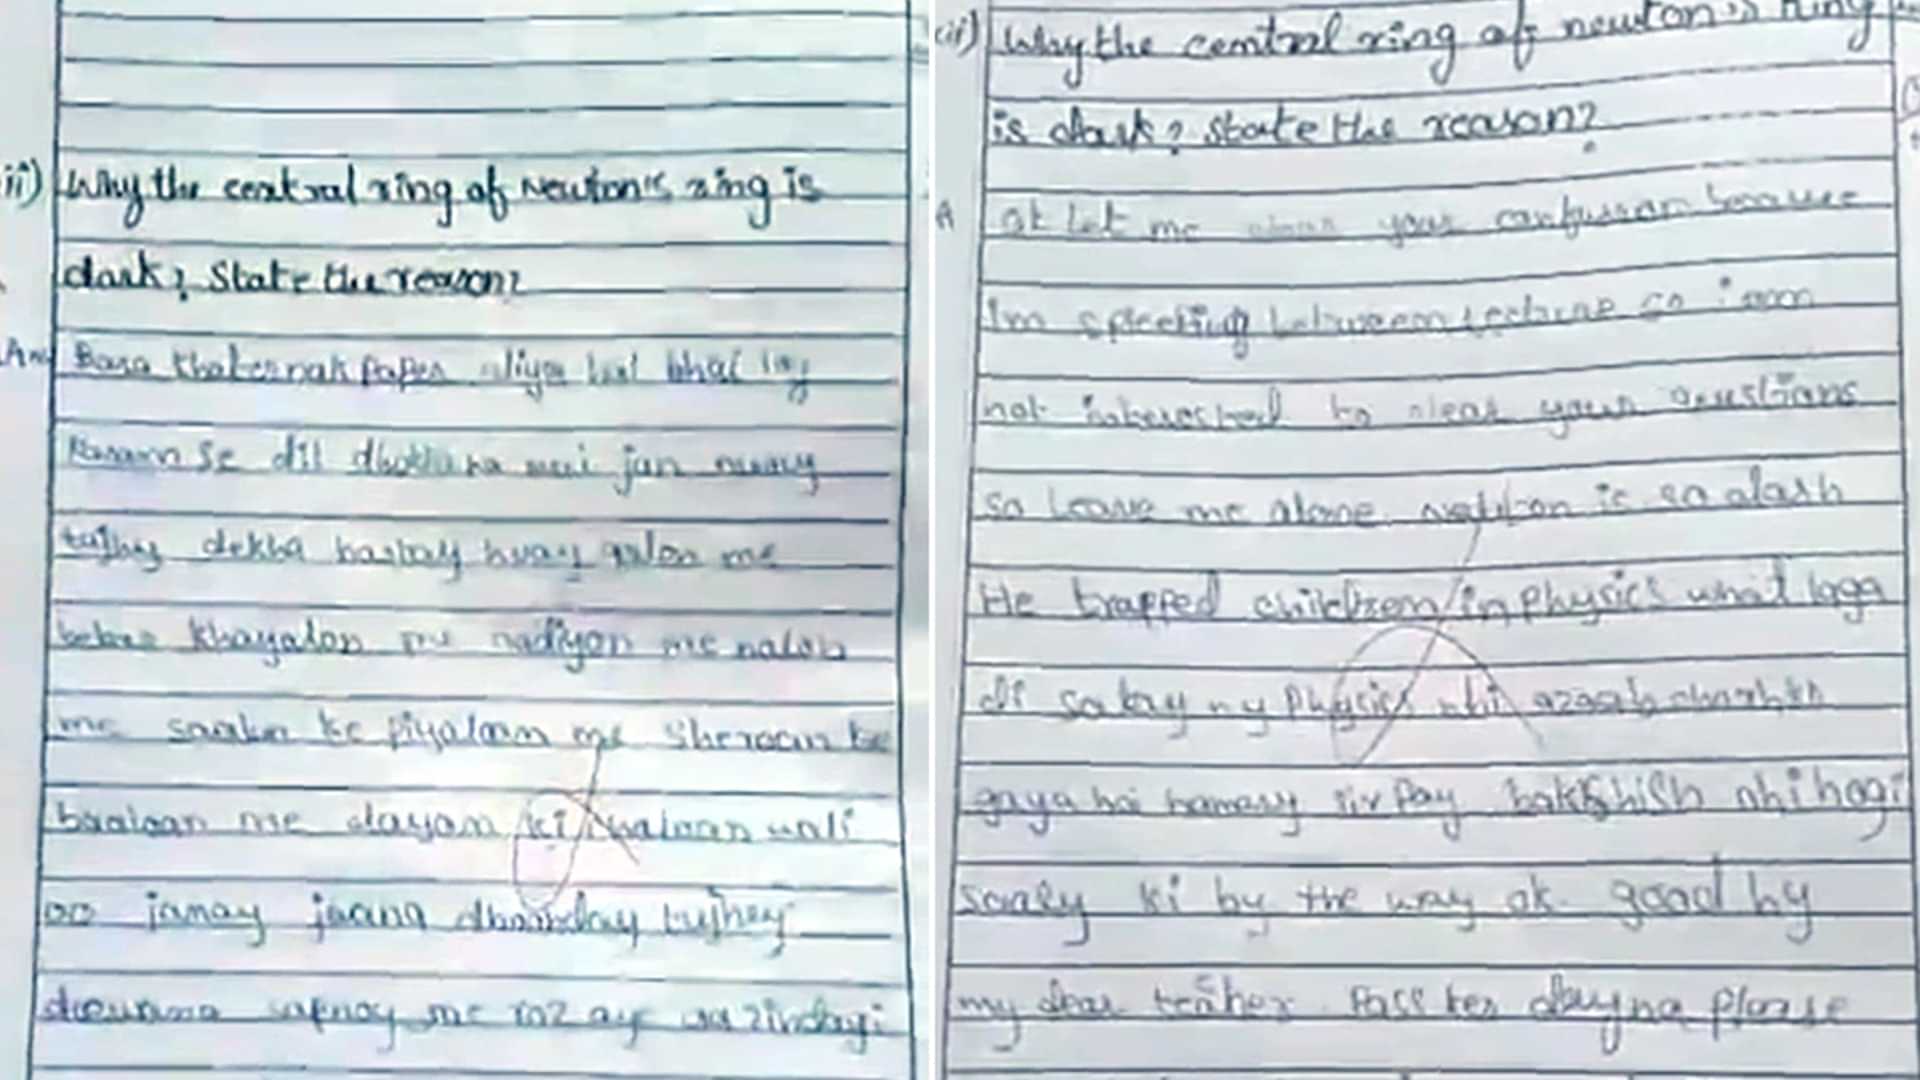 ii) Why the central ring of Newton's ring is
dark? State the reason?
Ans Bara khaternak paper hai bhai
Kasam se dil dhokha na jan
tujhy dekha hastay huay galon me
khayalon me nadiyon me nalon
me ke piyaloon me Sherooun ke
baaloon me dayam ki wali
oo janay jaana dhoonday tujhey
deewana sapnoy me roz aye zindagi
ii) Why the central ring of newton's ring
is dark? State the reason?
A ok let me clear your confussion because
Im speeking between lecture so i am
not interested to clear your questions
so leave me alone. is so
He trapped children in physics what laga
di sakay ny physics nhi azaab
gaya hai hamary sir pay bakhshish nhi hogi
saaley ki by the way ok good by
my dear teaher. Pass ker dayna please